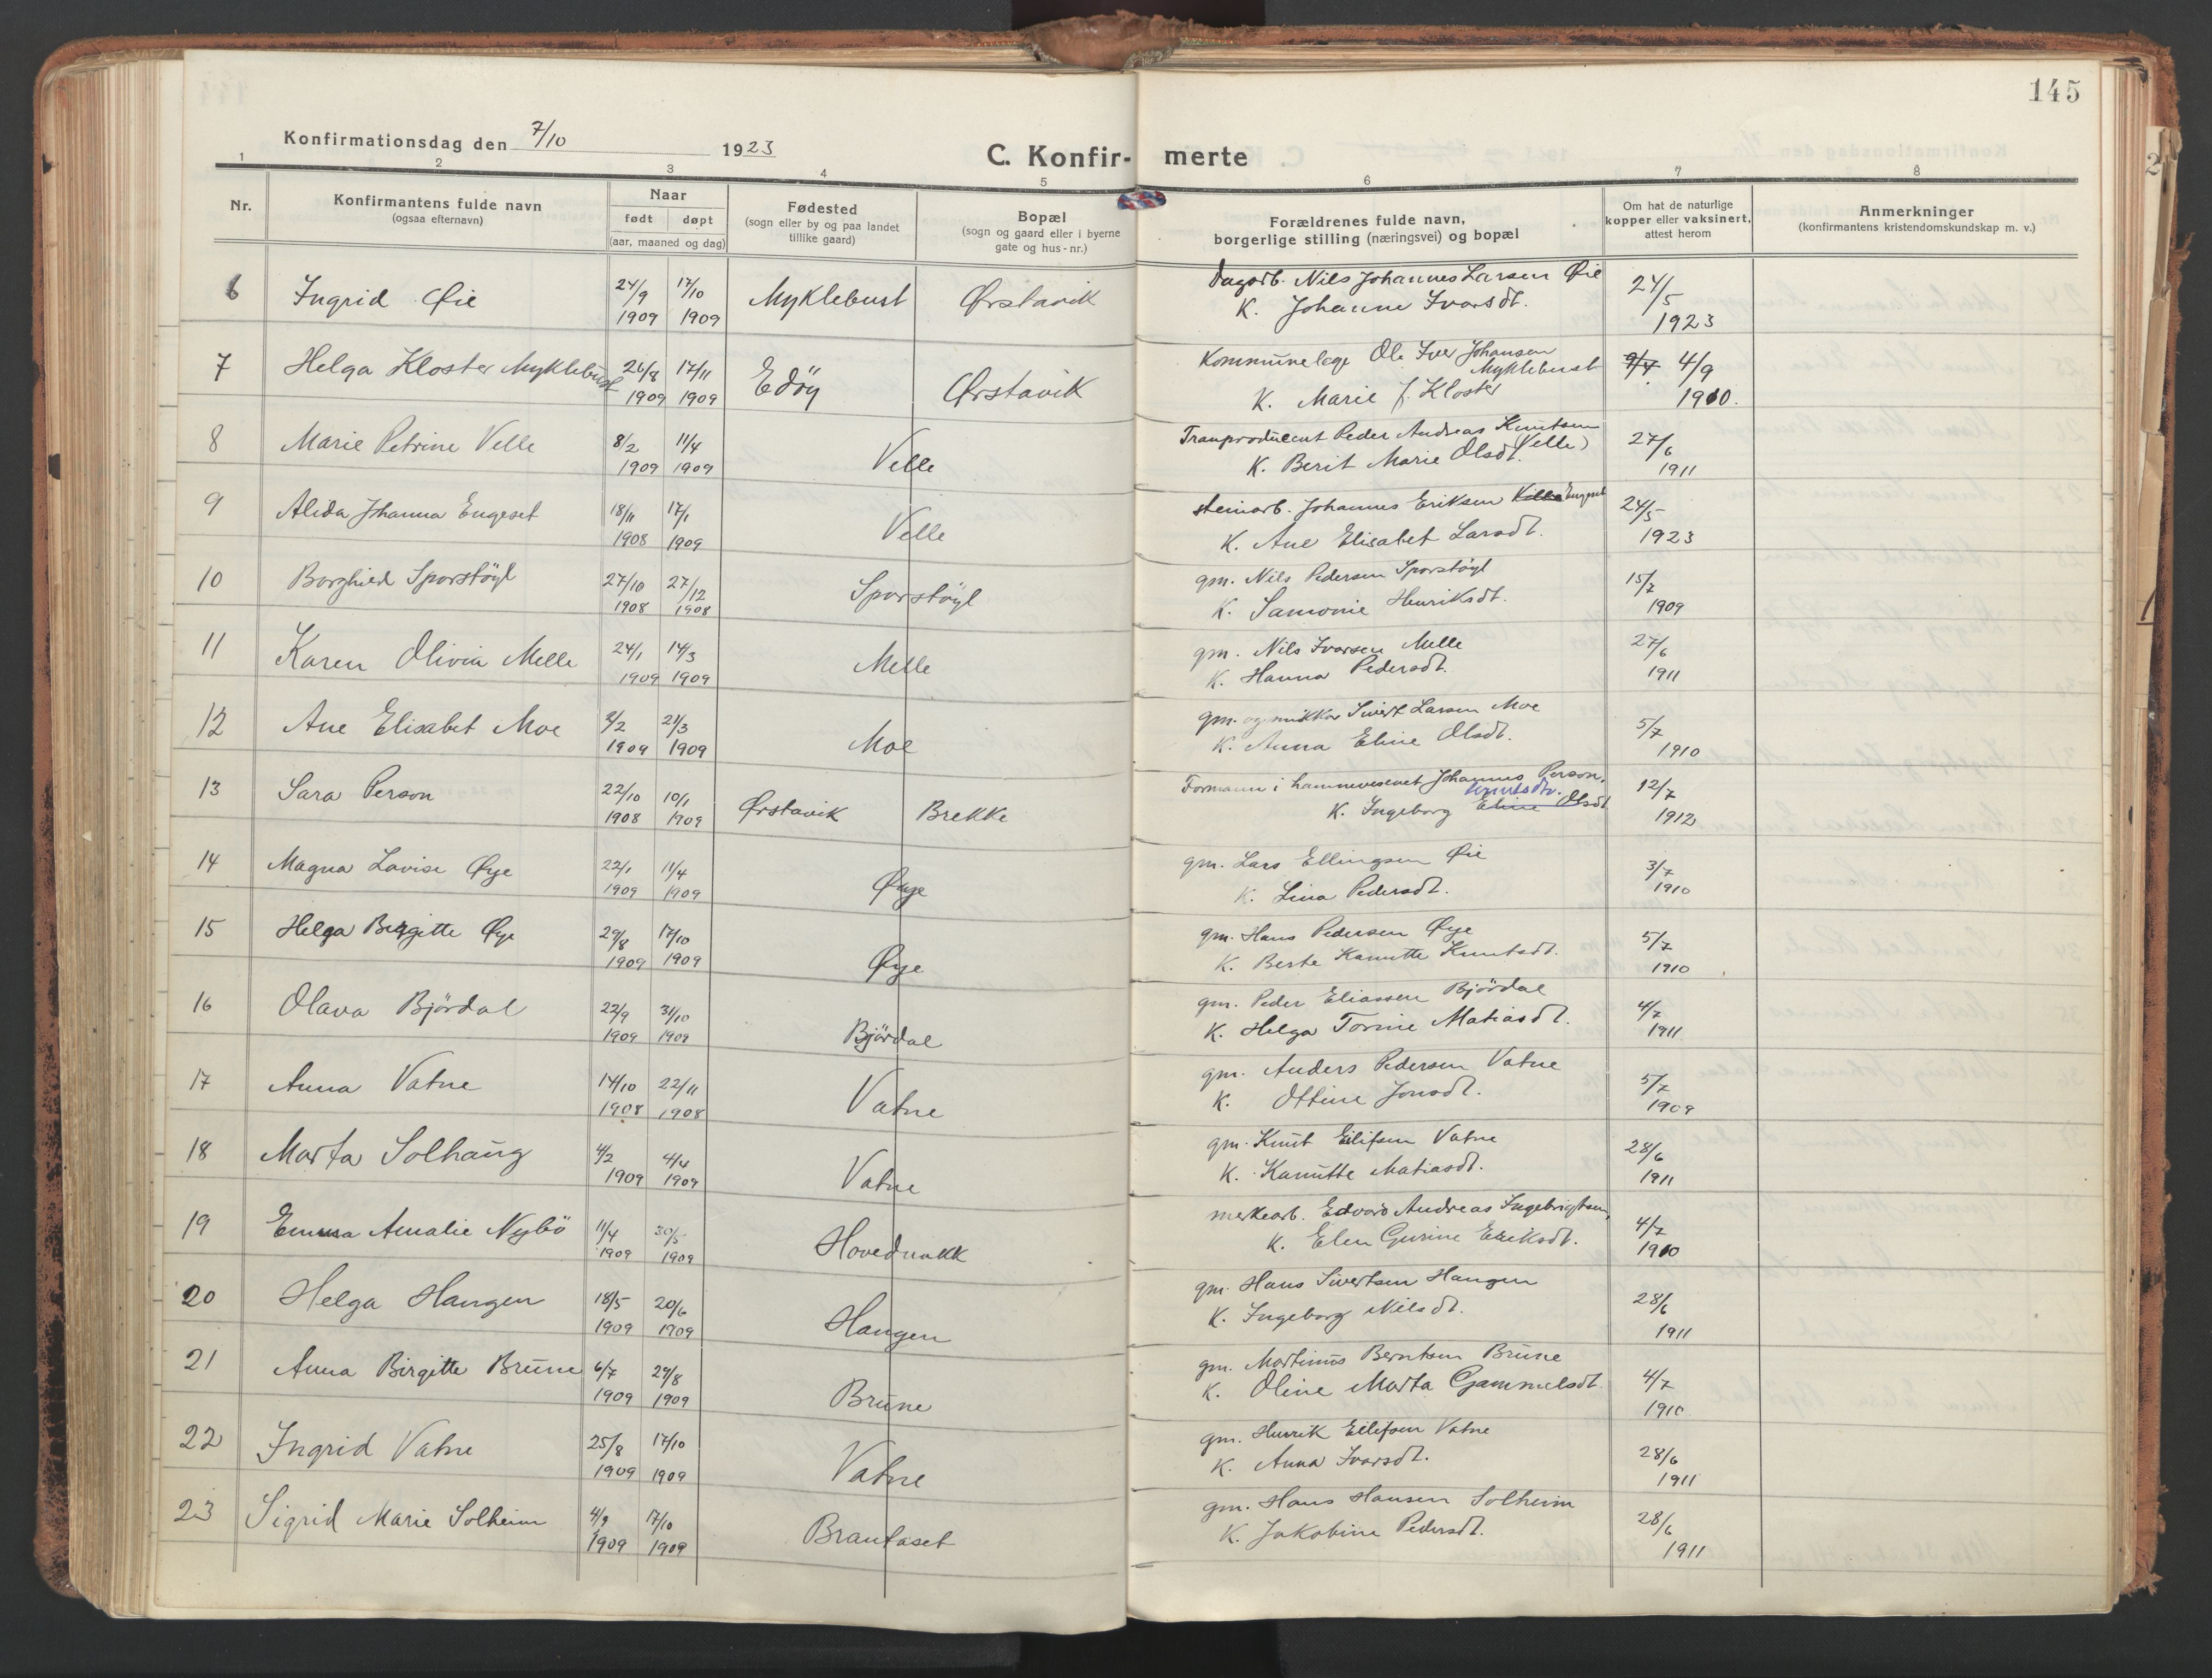 145
Konfirmationsdag den 7/10 1923
C. Konfir- merte
1 2 3 4 5 6 7 8
Nr.
Konfirmantens fulde navn
(ogsaa efternavn)
Naar
født døpt
(aar, maaned og dag)
Fødested
(sogn eller by og paa landet
tillike gaard)
Bopæl
(sogn og gaard eller i byerne
gate og hus-nr.)
Forældrenes fulde navn,
borgerlige stilling (næringsvei) og bopæl
Om hat de naturlige
kopper eller vaksinert,
attest herom
Anmerkninger
(konfirmantens kristendomskundskap m. v.)
6 Ingrid Øie 24/9 1909 17/10 1909 Myklebust Ørstavik
Dagarb. Nils Johannes Larsen Øie
K. Johanne Ivarsdt.
24/5 1923
7 Helga Kloster Myklebust 26/8 1909 17/11 1909 Edöy Ørstavik
Kommunelæge Ole Iver Johansen
Myklebust
K. Marie f. Kloster
9/7 4/9 1910.
8 Marie Petrine Velle 8/2 1909 11/4 1909 Velle
Tranproducent Peder Andreas Knutsen
Velle)
K. Berit Marie Olsdt.
27/6 1911
9 Alida Johanna Engeset 18/11 1908 17/1 1909 Velle
steinarb. Johannes Eriksen Velle Engeset
K. Ane Elisabet Larsdt.
24/5 1923
10 Borghild Sporstöyl 27/10 1908 27/12 1908 Sporstöyl
gm. Nils Pedersen Sporstöyl
K. Samonie Henriksdt.
15/7 1909
11 Karen Olivia Melle 24/1 1909 14/3 1909 Melle
gm. Nils Ivarsen Melle
K. Hanna Pedersdt.
27/6 1911
12 Ane Elisabet Moe 2/2 1909 21/3 1909 Moe
gm. og snikkar Sivert Larsen Moe
K. Anna Eline Olsdt.
5/7 1910
13 Sara Person 22/10 1908 10/1 1909 Ørstavik Brekke
Formann i havnevesenet Johannes Person.
Knutsdtr.
K. Ingeborg Eline Olsdt
12/7 1912
14 Magna Lovise Øye 22/1 1909 11/4 1909 Øye
gm. Lars Ellingsen Øie
K. Lina Pedersdt.
3/7 1910
15 Helga Birgitte Øye 29/8 1909 17/10 1909 Øye
gm. Hans Pedersen Øye
K. Berte Kanutte Knutsdt.
5/7 1910
16 Olava Björdal 22/9 1909 31/10 1909 Björdal
gm. Peder Eliassen Björdal
K. Helga Torine Matiasdt.
4/7 1911
17 Anna Vatne 14/10 1908 22/11 1908 Vatne
gm. Anders Pedersen Vatne
K. Ottine Jonsdt.
5/7 1909
18 Marta Solhaug 4/2 1909 4/4 1909 Vatne
gm. Knut Eilifsen Vatne
K. Kanutte Matiasdt.
28/6 1911
19 Emma Amalie Nybö 11/4 1909 30/5 1909 Hovednakk
merkearb. Edvard Andreas Ingebrigtsen,
K. Elen Gurine Eriksdt.
4/7 1910
20 Helga Haugen 18/5 1909 20/6 1909 Haugen
gm. Hans Sivertsen Haugen
K. Ingeborg Nilsdt.
28/6 1911
21 Anna Birgitte Brune 6/7 1909 29/8 1909 Brune
gm. Martinus Berntsen Brune
K. Oline Marta Gammelsdt.
4/7 1910
22 Ingrid Vatne 25/8 1909 17/10 1909 Vatne
gm. Henrik Eilifsen Vatne
K. Anna Ivarsdt.
28/6 1911
23 Sigrid Marie Solheim 4/9 1909 17/10 1909 Brautaset
gm. Hans Hansen Solheim
K. Jakobine Pedersdt.
28/6 1911